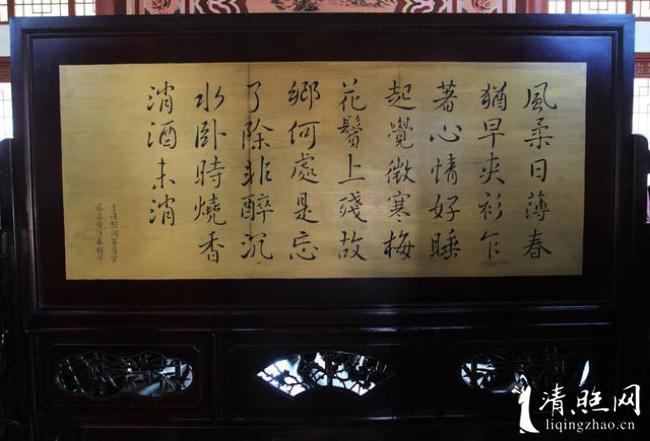 風柔日薄春
猶早夾衫乍
著心情好睡
起覺微寒梅
花鬢上殘故
鄉何處是忘
了除非醉沉
水卧時燒香
消酒未消
李清照詞菩薩蠻
清照网
liqingzhao.cn